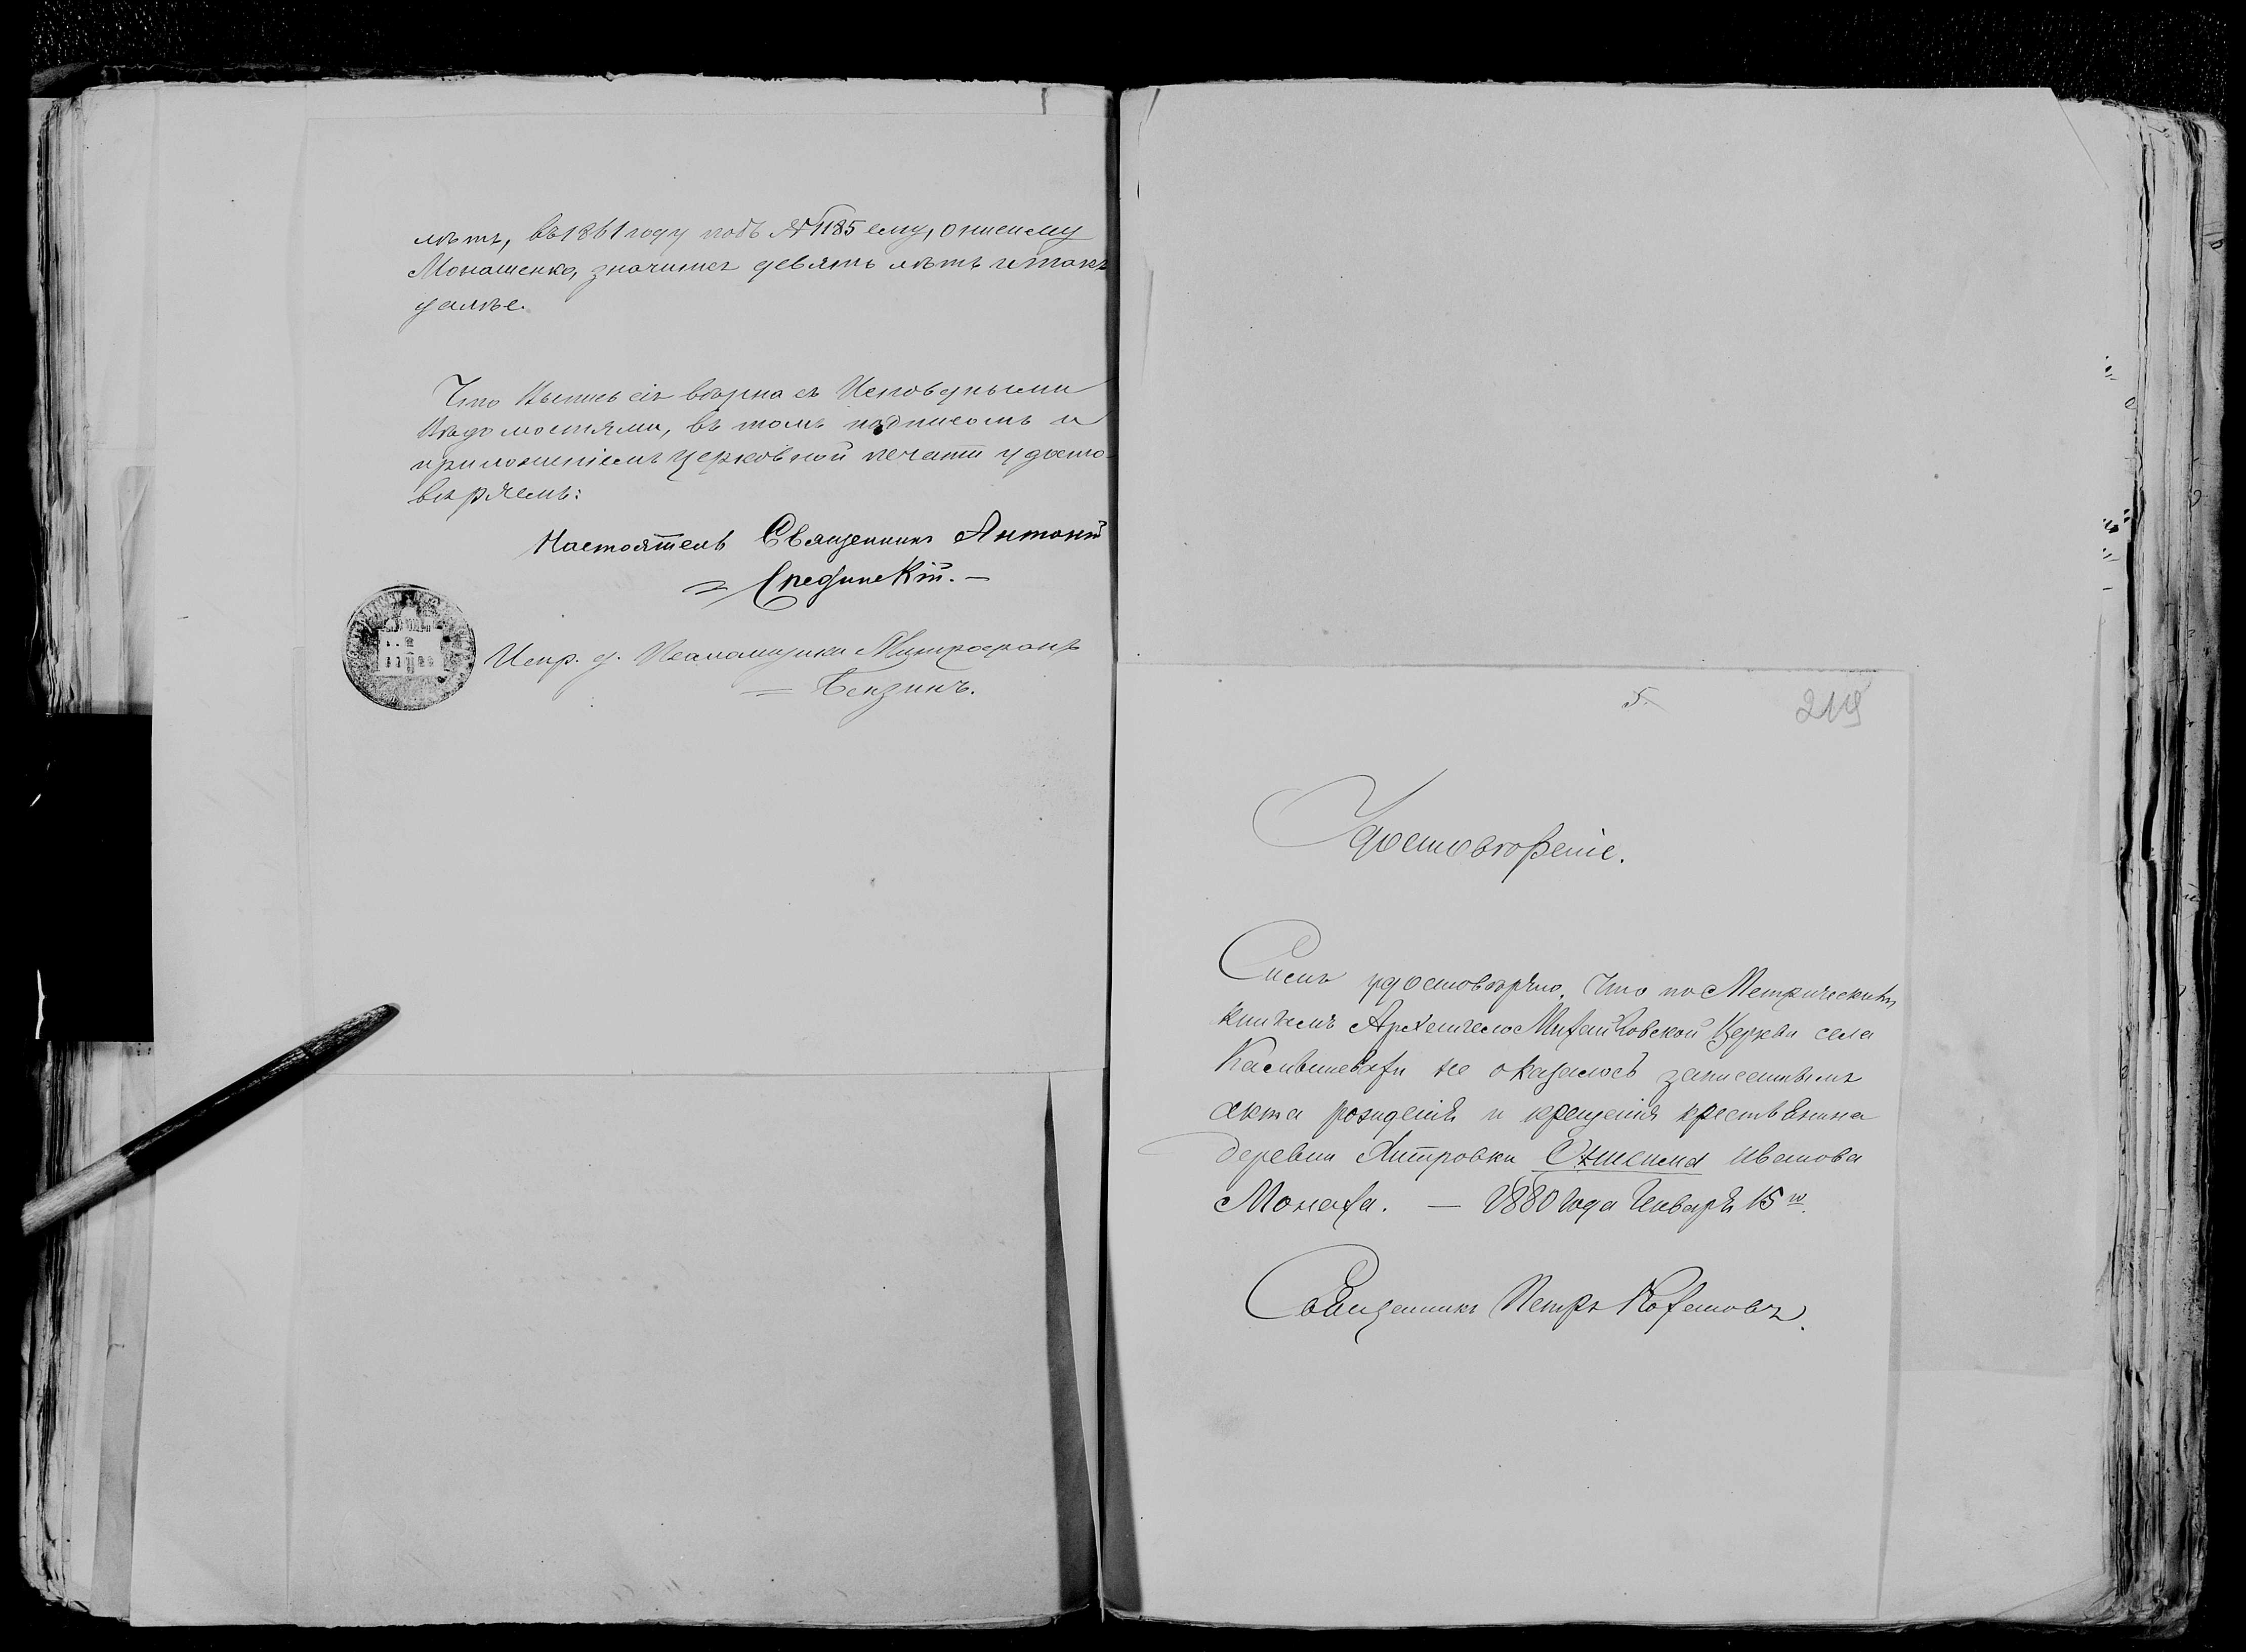 лѣтъ, въ 1861 году подъ № 1185 ему, Онисиму
Монашенко, значится девять лѣтъ и такъ
далѣе.
Что Выпись сія вѣрна съ Исповѣдными
Вѣдомостями, въ томъ подписомъ и
приложеніемъ церковной печати удосто-
вѣряемъ:
Настоятель Священникъ Антоній
Срединскій. —
Испр. д. Псаломщика Митрофанъ
= Бензинъ.
5.
219
Удостовѣреніе.
Симъ удостовѣряю, что по Метрическимъ
книгамъ Архангело Михайловской Церкви села
не оказалось записаннымъ
акта рожденія и крещенія крестьянина
деревни Онисима Иванова
Монаха. — 1880 года Января 15 го.
Священникъ Петръ